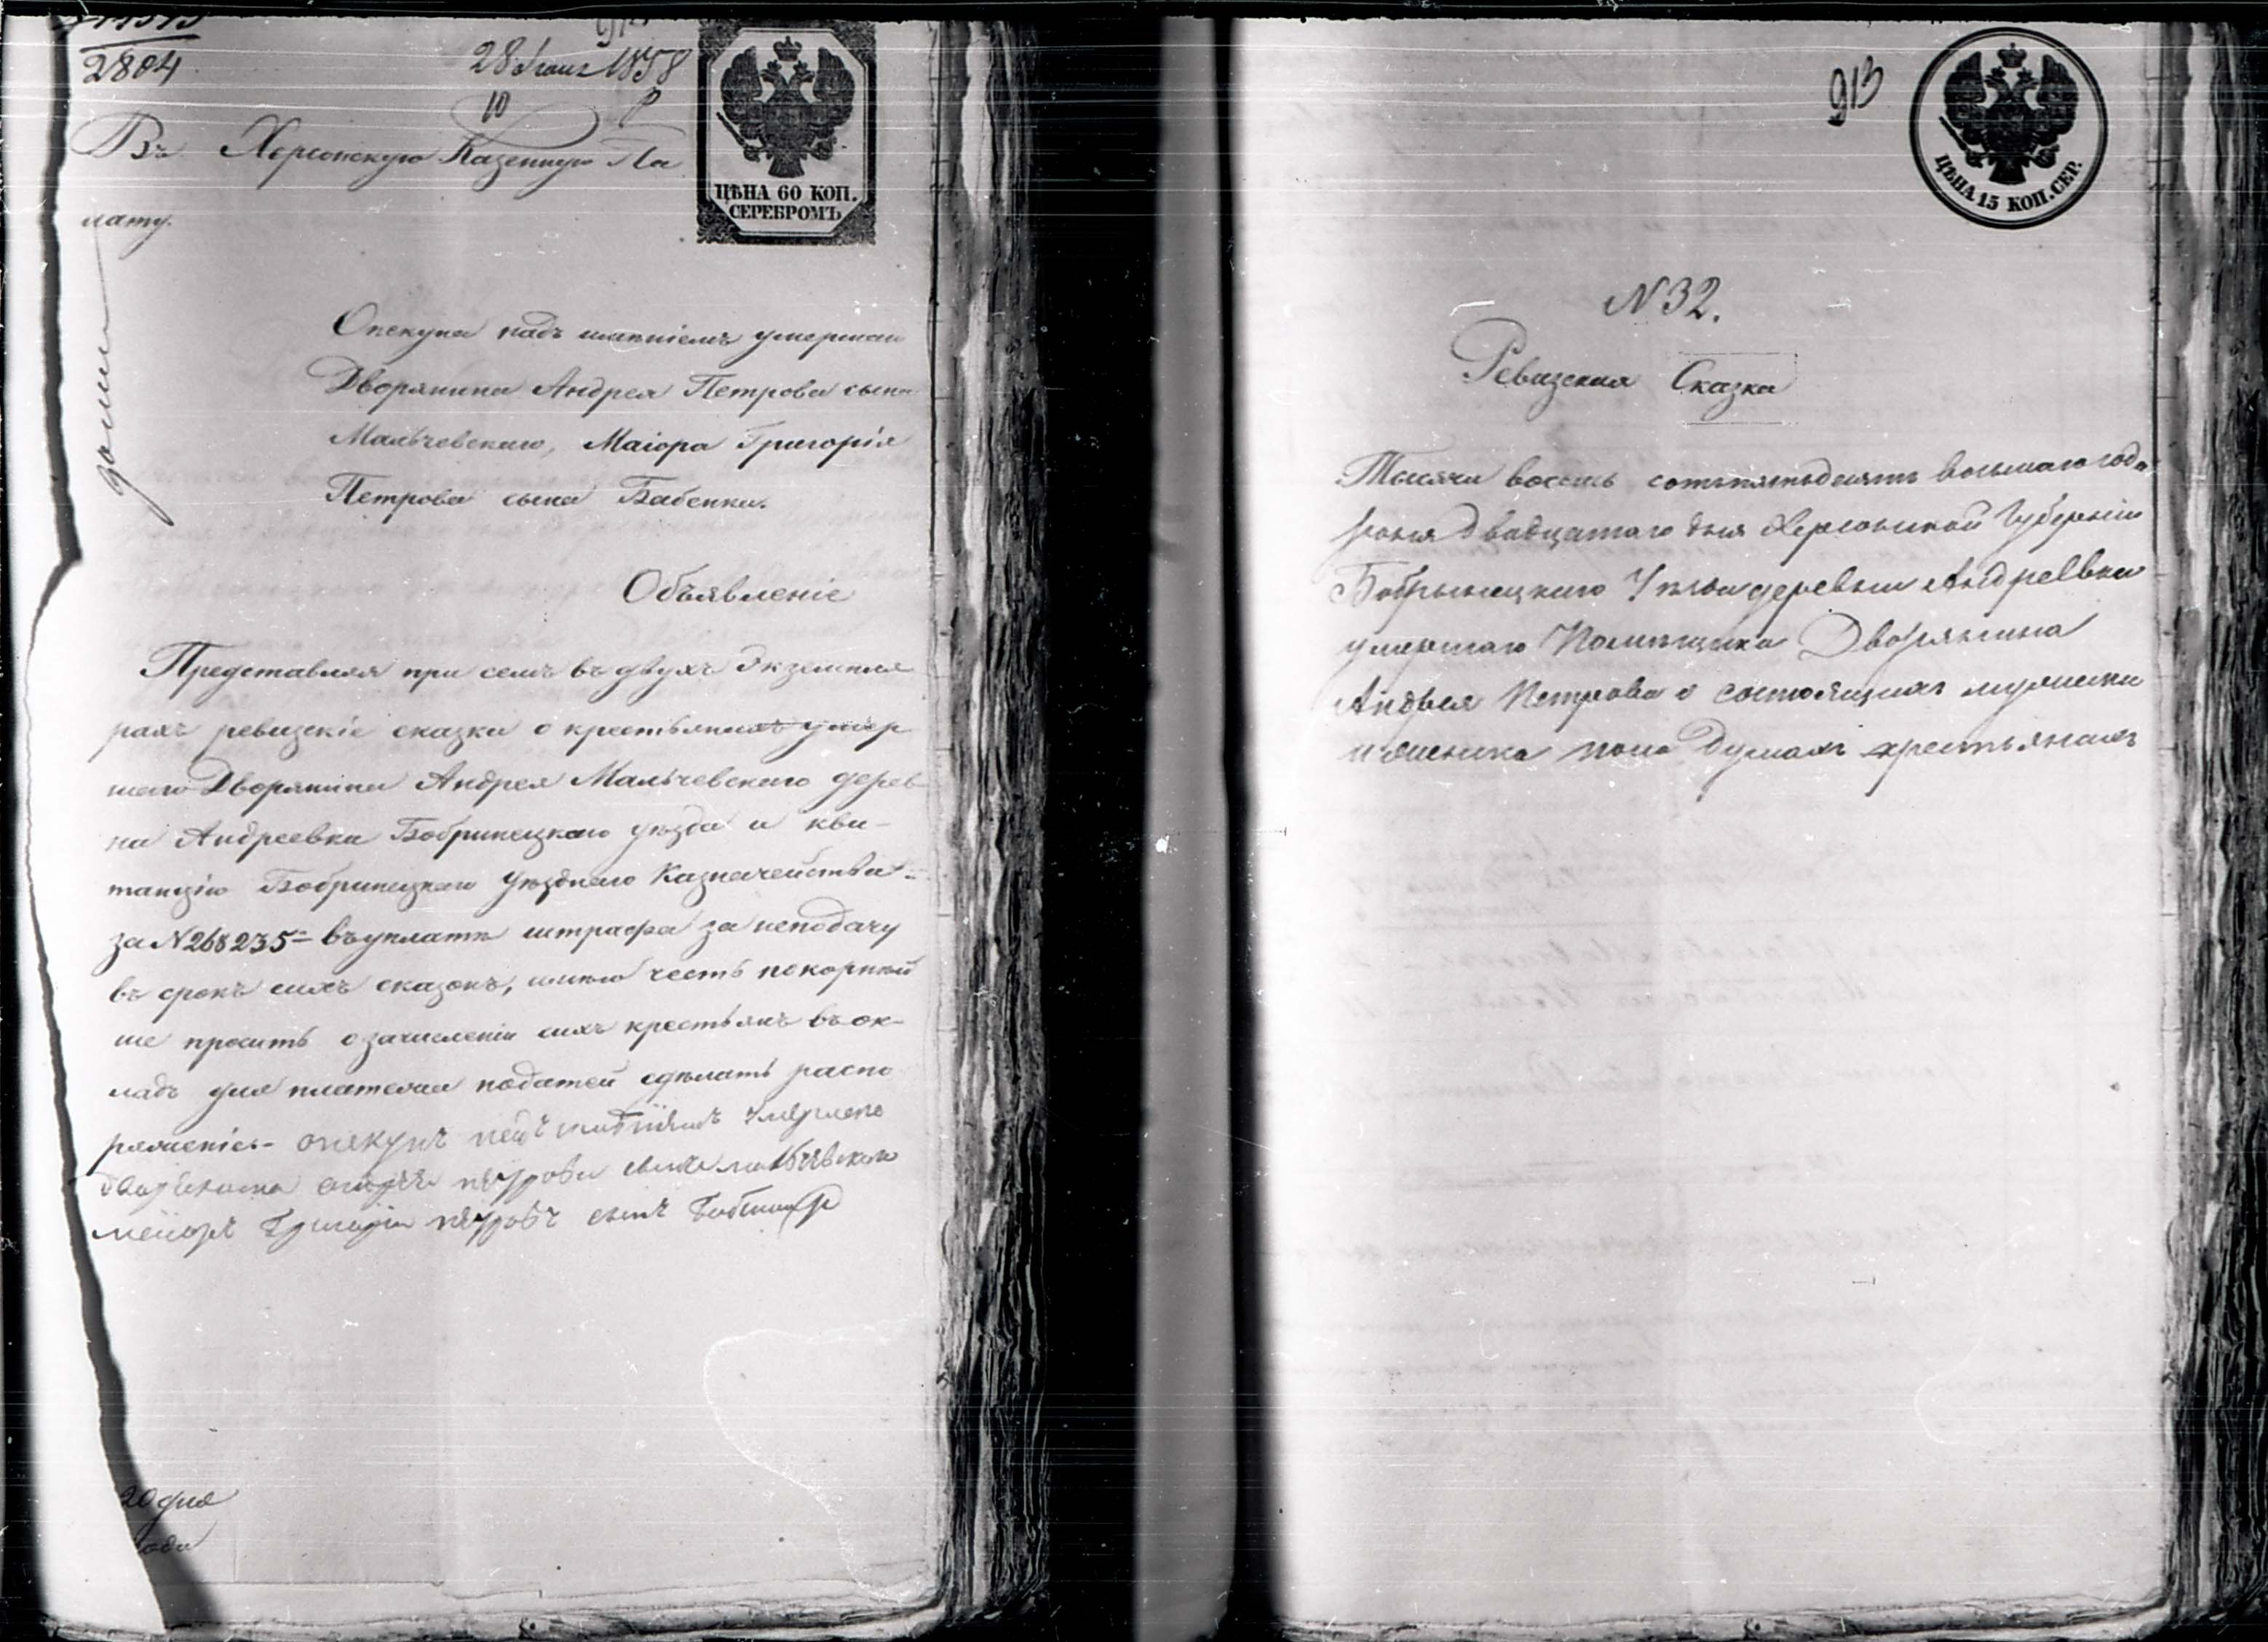 2804
28 Іюня 1858
10
Въ Херсонскую Казенную Па
лату.
ЦѢНА 60 КОП.
СЕРЕБРОМЪ
Опекуна надъ имѣніемъ умершаго
Дворянина Андрея Петрова сына
Мальчевскаго, Маіора Григорія
Петрова сына Бабенки.
Объявленіе
Представляя при семъ въ двухъ экземпля
рахъ ревизскіе сказки о крестьянахъ умер
шаго Дворянина Андрея Мальчевскаго дерев
ни Андреевки Бобринецкаго уѣзда и кви-
танцію Бобринецкаго Уѣзднаго Казначейства
за N 268235 въ уплатѣ штрафа за неподачу
въ срокъ сихъ сказокъ, имѣю честь покорнѣй
ше просить о зачисленіи сихъ крестьянъ въ ок-
ладъ для платежа податей сдѣлать распо
ряженіе. опекунъ надъ имѣніемъ умершаго
дворянина андрея петрова сына мальчевскаго
маіоръ Григорій петровъ сынъ Бабенко
20 дня
года
913
ЦѢНА 15 КОП. СЕР.
N 32.
Ревизская Сказка
Тысяча восемь сотъ пятьдесятъ восьмаго года
Іюня двадцатаго дня Херсонской Губерніи
Бобринецкаго Уѣзда деревни Андреевки
умершаго Помѣщика Дворянина
Андрея Петрова о состоящихъ мужеска
и женска пола душахъ крестьянахъ